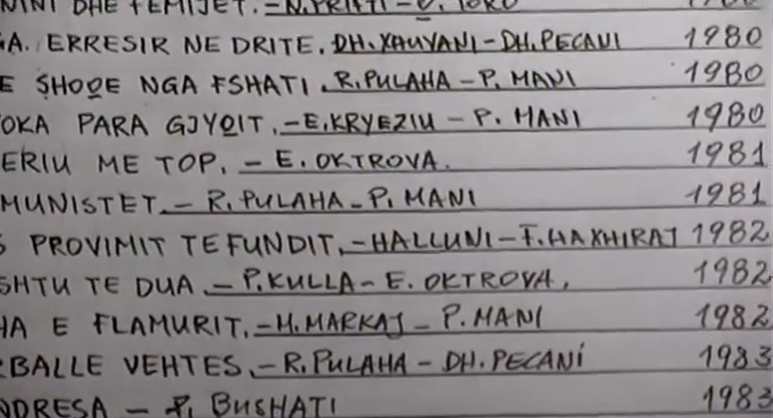 DHE FEMIJET. - N. PRIFTI -
GA. ERRESIR NE DRITE. DH. XHUVANI - DH. PECANI 1980
E SHOQE NGA FSHATI. R. PULAHA - P. MANI 1980
TOKA PARA GJYQIT. - E. KRYEZIU - P. MANI 1980
ERIU ME TOP. - E. OKTROVA. 1981
MUNISTET. - R. PULAHA - P. MANI 1981
S PROVIMIT TE FUNDIT. - HALLUNI - F. HAXHIRAJ 1982
SHTU TE DUA. - P. KULLA - E. OKTROVA. 1982
HA E FLAMURIT. - M. MARKAJ - P. MANI 1982
BALLE VEHTES. - R. PULAHA - DH. PECANI 1983
NDRESA - P. BUSHATI 1983